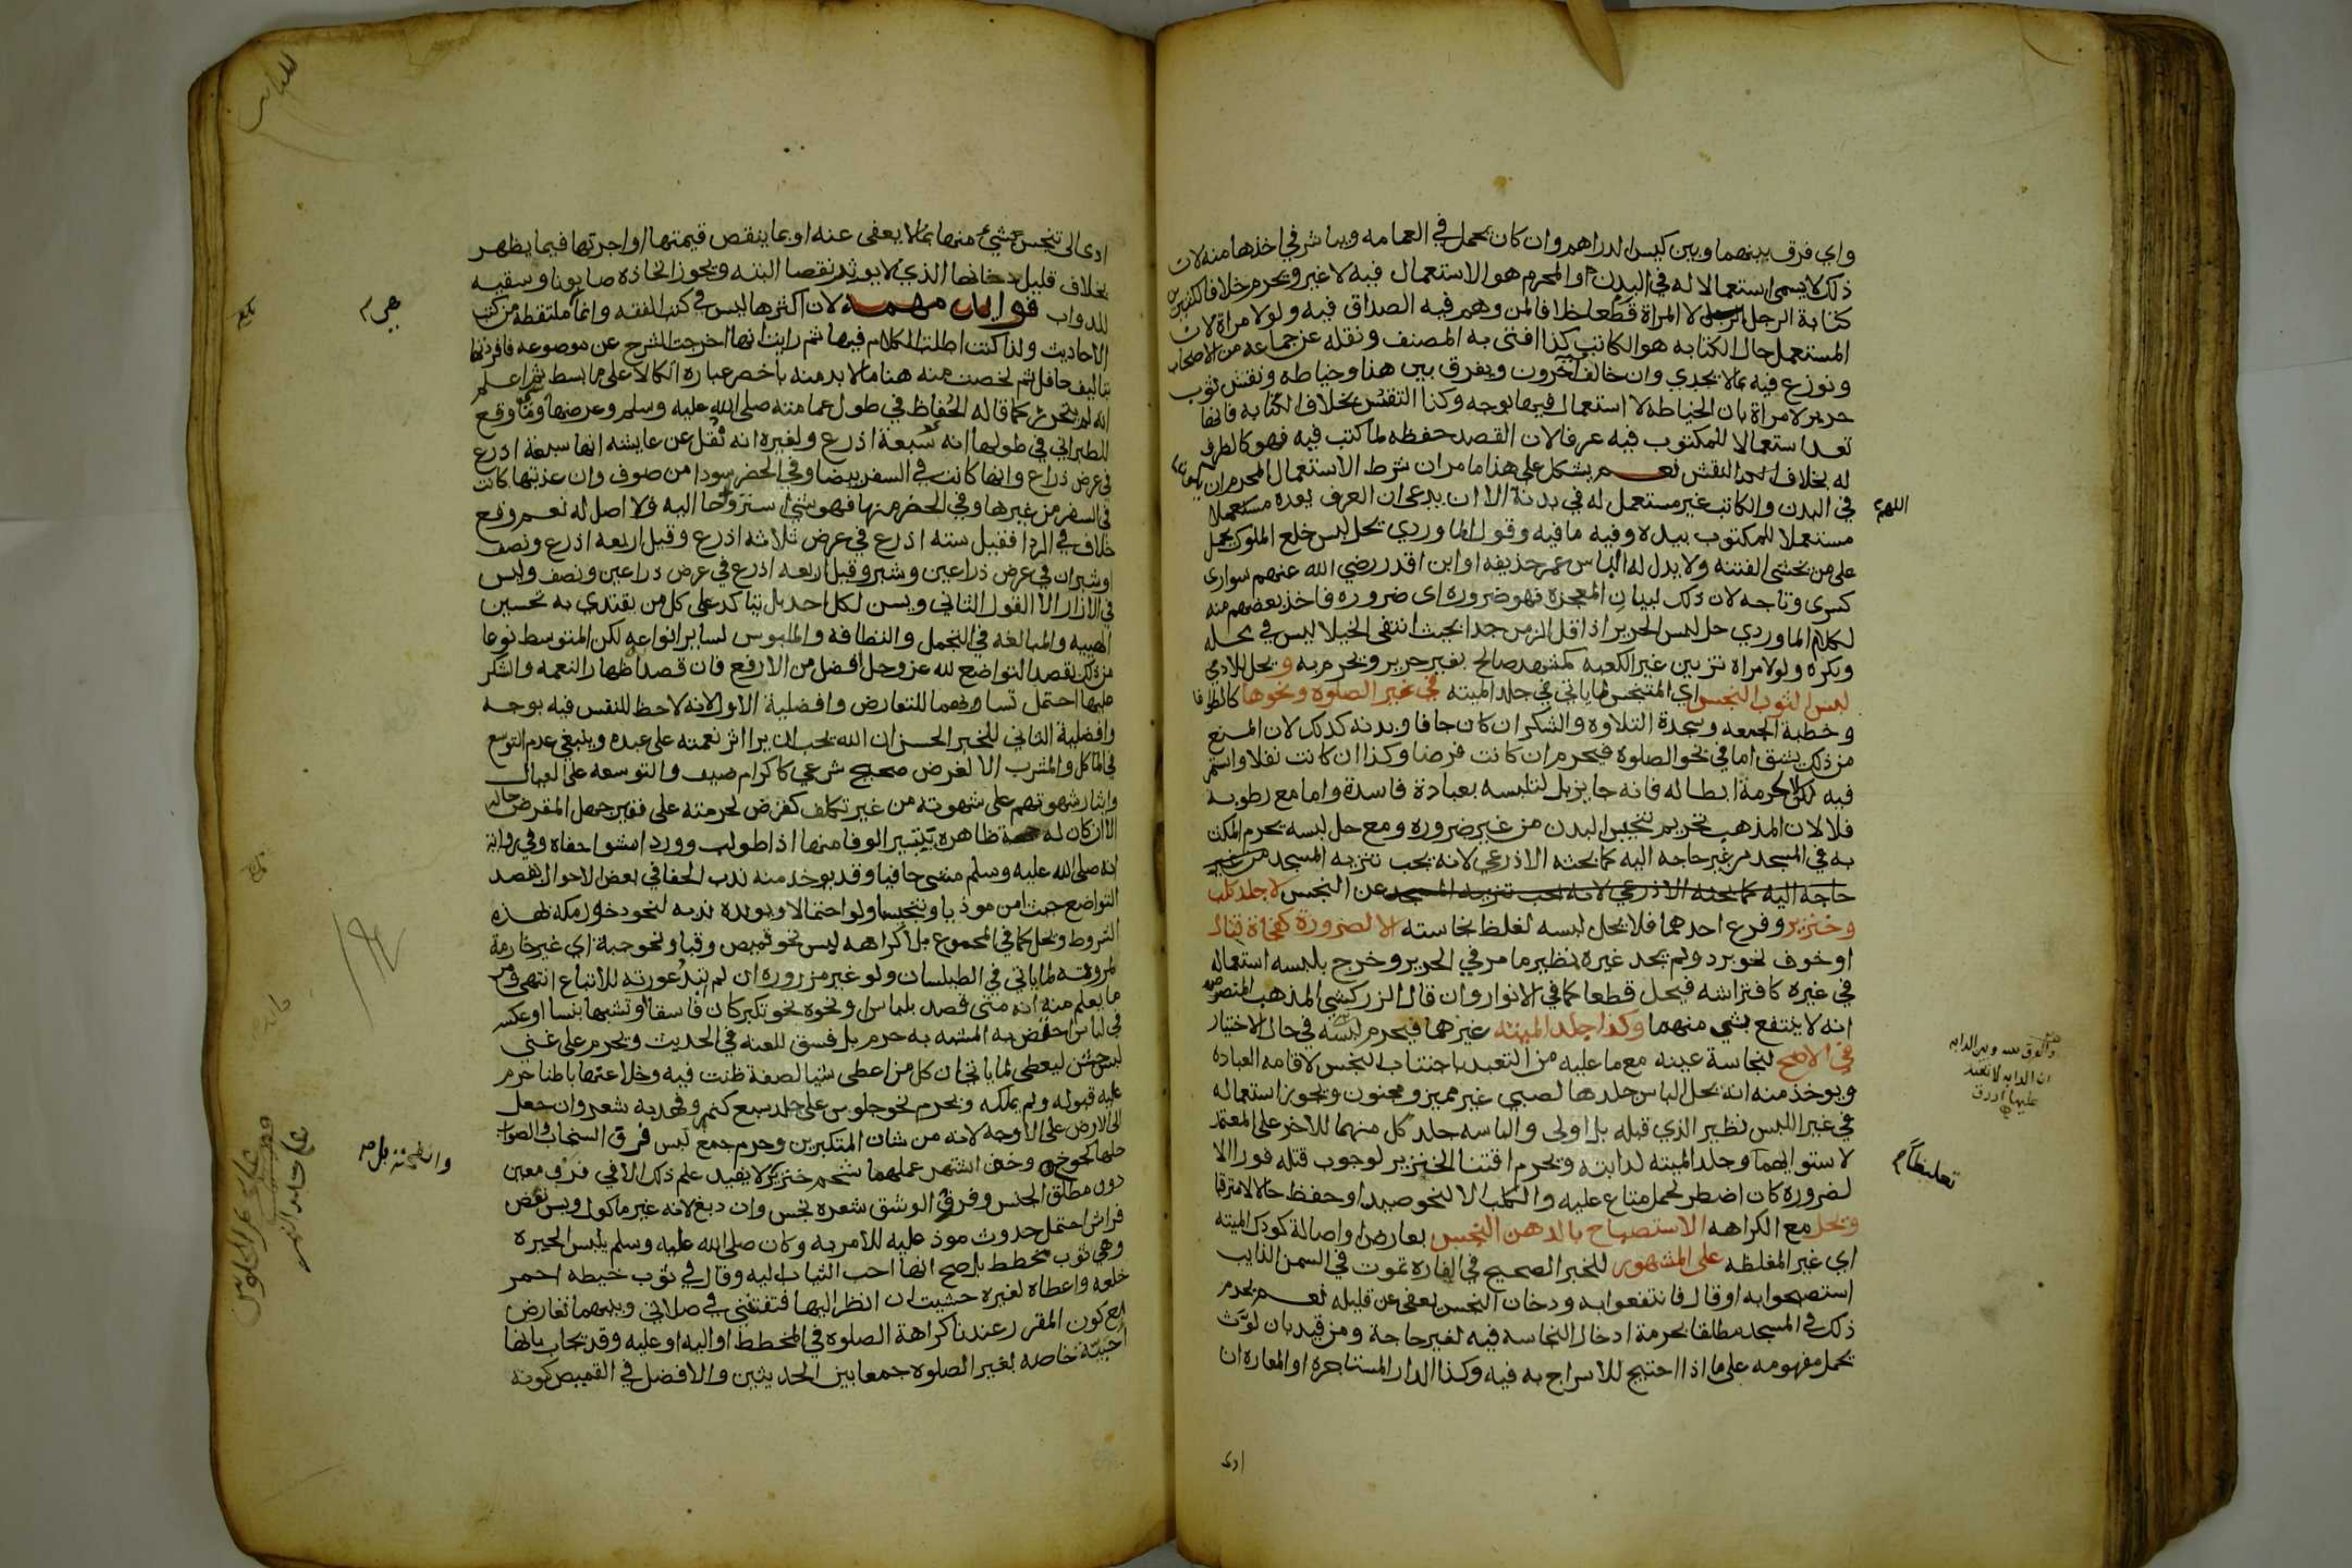 واي فرق بينهما وبين كيس الدراهم وان كان يحمل في العمامه ويباشر في اخذها منه لان
ذلك لا يسمى استعمالا له في البدن او المحرم هو الاستعمال فيه لا غير ويحرم خلافا لكثيرين
كتابة الرجل لا المراة قطعا خلافا لمن وهم فيه الصداق فيه ولو لامراة لان
المستعمل حال الكتابه هو الكاتب كذا افتى به المصنف ونقله عن جماعه من الاصحاب
ونوزع فيه بما لا يجدي وان خالف آخرون ويفرق بين هذا وخياطه ونقش ثوب
حرير لامراة بان الخياطه لا استعمال فيها بوجه وكذا النقش بخلاف الكتابه فانها
تعد استعمالا للمكتوب فيه عرفا لان القصد حفظه لما كتب فيه فهو كالظرف
له بخلاف النقش نعم يشكل على هذا ما مر ان شرط الاستعمال المحرم ان يكون
في البدن والكاتب غير مستعمل له في بدنه الا ان يدعى ان العرف يعده مستعملا
اللهم
مستعملا للمكتوب بيده وفيه ما فيه وقول الماوردي يحل لبس خلع الملوك يحمل
على من يخشى الفتنه ولا يدل له الباس عمر حذيفه او ابن اقدر رضي الله عنهم سواري
كسرى وتاجه لان ذلك لبيان المعجزة فهو ضروره اى ضروره فاخذ بعضهم منه
لكلام الماوردي حل لبس الحرير اذا قل الزمن جدا بحيث انتفى الخيلا ليس في محله
ويكره ولو لامراة تزيين غير الكعبه كمشهد صالح بغير حرير ويحرم به ويحل للادمي
لبس الثوب النجس اي المتنجس لما ياتي في جلد الميته في غير الصلوة ونحوها كالطواف
وخطبة الجمعه وسجدة التلاوه والشكر ان كان جافا وبدنه كذلك لان المنع
من ذلك يشق اما في نحو الصلوة فيحرم ان كانت فرضا وكذا ان كانت نفلا واستمر
فيه لكن لا لحرمة ابطاله فانه جايز بل لتلبسه بعبادة فاسدة واما مع رطوبه
فلا لان المذهب تحريم تنجيس البدن من غير ضروره ومع حل لبسه يحرم المكث
به في المسجد من غير حاجه اليه كما بحثه الاذرعي لانه يجب تنزيه المسجد من غير
حاجة اليه كما بحثه الاذرعي لانه يجب تنزيه المسجد عن النجس لا جلد كلب
وخنزير وفرع احدهما فلا يحل لبسه لغلظ نجاسته الا لضرورة كفجاة قتال
او خوف نحو برد ولم يجد غيره نظير ما مر في الحرير وخرج بلبسه استعماله
في غيره كافتراشه فيحل قطعا كما في الانوار وان قال الزركشي المذهب المنصوص
انه لا ينتفع بشي منهما وكذا جلد الميته غيرهما فيحرم لبسه في حال الاختيار
في الاصح لنجاسة عينه مع ما عليه من التعبد باجتناب النجس لاقامه العباده
ويوخذ منه انه يحل الباس جلدها لصبي غير مميز ومجنون ويجوز استعماله
في غير اللبس نظير الذي قبله بل اولى والباسه جلد كل منهما للاخر على المعتمد
لاستوايهما وجلد الميته لدابته ويحرم اقتنا الخنزير لوجوب قتله فورا الا
تغليظا م
لضروره كان اضطر لحمل متاع عليه والكلب الا لنحو صيد او حفظ حالا لا مترقبا
ويحل مع الكراهه الاستصباح بالدهن النجس بعارض او اصالة كودك الميته
اي غير المغلظه على المشهور للخبر الصحيح في الفاره تموت في السمن الذايب
استصبحوا به او قال فانتفعوا به ودخان النجس يعفى عن قليله نعم يحرم
ذلك في المسجد مطلقا لحرمة ادخال النجاسه فيه لغير حاجة ومن قيد بان لوث
يحمل مفهومه على ما اذا احتيج للاسراج به فيه وكذا الدار المستاجره او المعاره ان
ادى
ادى الى تنجس شي منها بما لا يعفى عنه او بما ينقص قيمتها او اجرتها فيما يظهر
بخلاف قليل دخانها الذي لا يوثر نقصا البته ويجوز اتخاذه صابونا وسقيه
للدواب فوايد مهمه لان اكثرها ليس في كتب الفقه وانما ملتقطة من كتب
الاحاديث ولذا كنت اطلت الكلام فيها ثم رايت انها اخرجت الشرح عن موضوعه فافردتها
بتاليف حافل ثم لخصت منه هنا ما لا بد منه باخصر عباره اتكالا على ما بسط ثم اعلم
انه لم يتحرر كما قاله الحفاظ في طول عمامته صلى الله عليه وسلم وعرضها شي وما وقع
للطبراني في طولها انه سبعة اذرع ولغيره انه نقل عن عايشه انها سبعة اذرع
في عرض ذراع وانها كانت في السفر بيضا وفي الحضر سودا من صوف وان عذبتها كانت
في السفر من غيرها وفي الحضر منها فهو شي استروحا اليه ولا اصل له نعم وقع
خلاف في الردا فقيل سته اذرع في عرض ثلاثه اذرع وقيل اربعه اذرع ونصف
او شبران في عرض ذراعين وشبر وقيل اربعه اذرع في عرض ذراعين ونصف وليس
في الازار الا القول الثاني ويسن لكل احد بل يتاكد على كل من يقتدى به تحسين
الهييه والمبالغه في التجمل والنظافه والملبوس لساير انواعه لكن المتوسط نوعا
من ذلك بقصد التواضع لله عز وجل افضل من الارفع فان قصد اظهار النعمه والشكر
عليها احتمل تساويهما للتعارض وافضلية الاول لانه لا حظ للنفس فيه بوجه
وافضلية الثاني للخبر الحسن ان الله يحب ان يرا اثر نعمته على عبده وينبغي عدم التوسع
في الماكل والمشرب الا لغرض صحيح شرعي كاكرام ضيف والتوسعه على العيال
وايثار شهوتهم على شهوته من غير تكلف كقرض لحرمته على فقير جهل المقرض حاله
الا ان كان له جهة ظاهره يتيسر الوفا منها اذا طولب وورد امشوا حفاه وفي رواية
انه صلى الله عليه وسلم مشى حافيا وقد يوخذ منه ندب الحفا في بعض الاحوال بقصد
التواضع حيث امن موذيا وتنجسا ولو احتمالا ويويده ندبه لنحو دخول مكة بهذه
الشروط ويحل كما في المجموع بلا كراهه لبس نحو قميص وقبا ونحو جبة اي غير خارمة
لمروءته لما ياتي في الطيلسان ولو غير مزروره ان لم تبد عورته للاتباع انتهى ومر
ما يعلم منه انه متى قصد بلباس او نحوه نحو تكبر كان فاسقا او تشبها بنسا او عكسه
في لباس اختص به المشبه به حرم بل فسق للعنه في الحديث ويحرم على غني
لبس خشن ليعطى لما ياتي ان كل من اعطي شيا لصفة ظنت فيه وخلا عنها باطنا حرم
عليه قبوله ولم يملكه ويحرم نحو جلوس على جلد سبع كنمر وفهد به شعر وان جعل
الى الارض على الاوجه لانه من شان المتكبرين وحرم جمع لبس فرو السنجاب والصواب
حلها كجوخ وجبن اشتهر عملهما بشحم خنزير لا يفيد علم ذلك الا في فرو معين
دون مطلق الجنس وفرو الوشق شعره نجس وان دبغ لانه غير ماكول ويسن نفض
فراش احتمل حدوث موذ عليه للامر به وكان صلى الله عليه وسلم يلبس الحبره
وهي ثوب مخطط بل صح انها احب الثياب اليه وقال في ثوب خيطه احمر
خلعه واعطاه لغيره خشيت ان انظر اليها فتفتنني في صلاتي وبينهما تعارض
مع كون المقرر عندنا كراهة الصلوة في المخطط او اليه او عليه وقد يجاب بانها
احبيّه خاصه بغير الصلوة جمعا بين الحديثين والافضل في القميص كونه